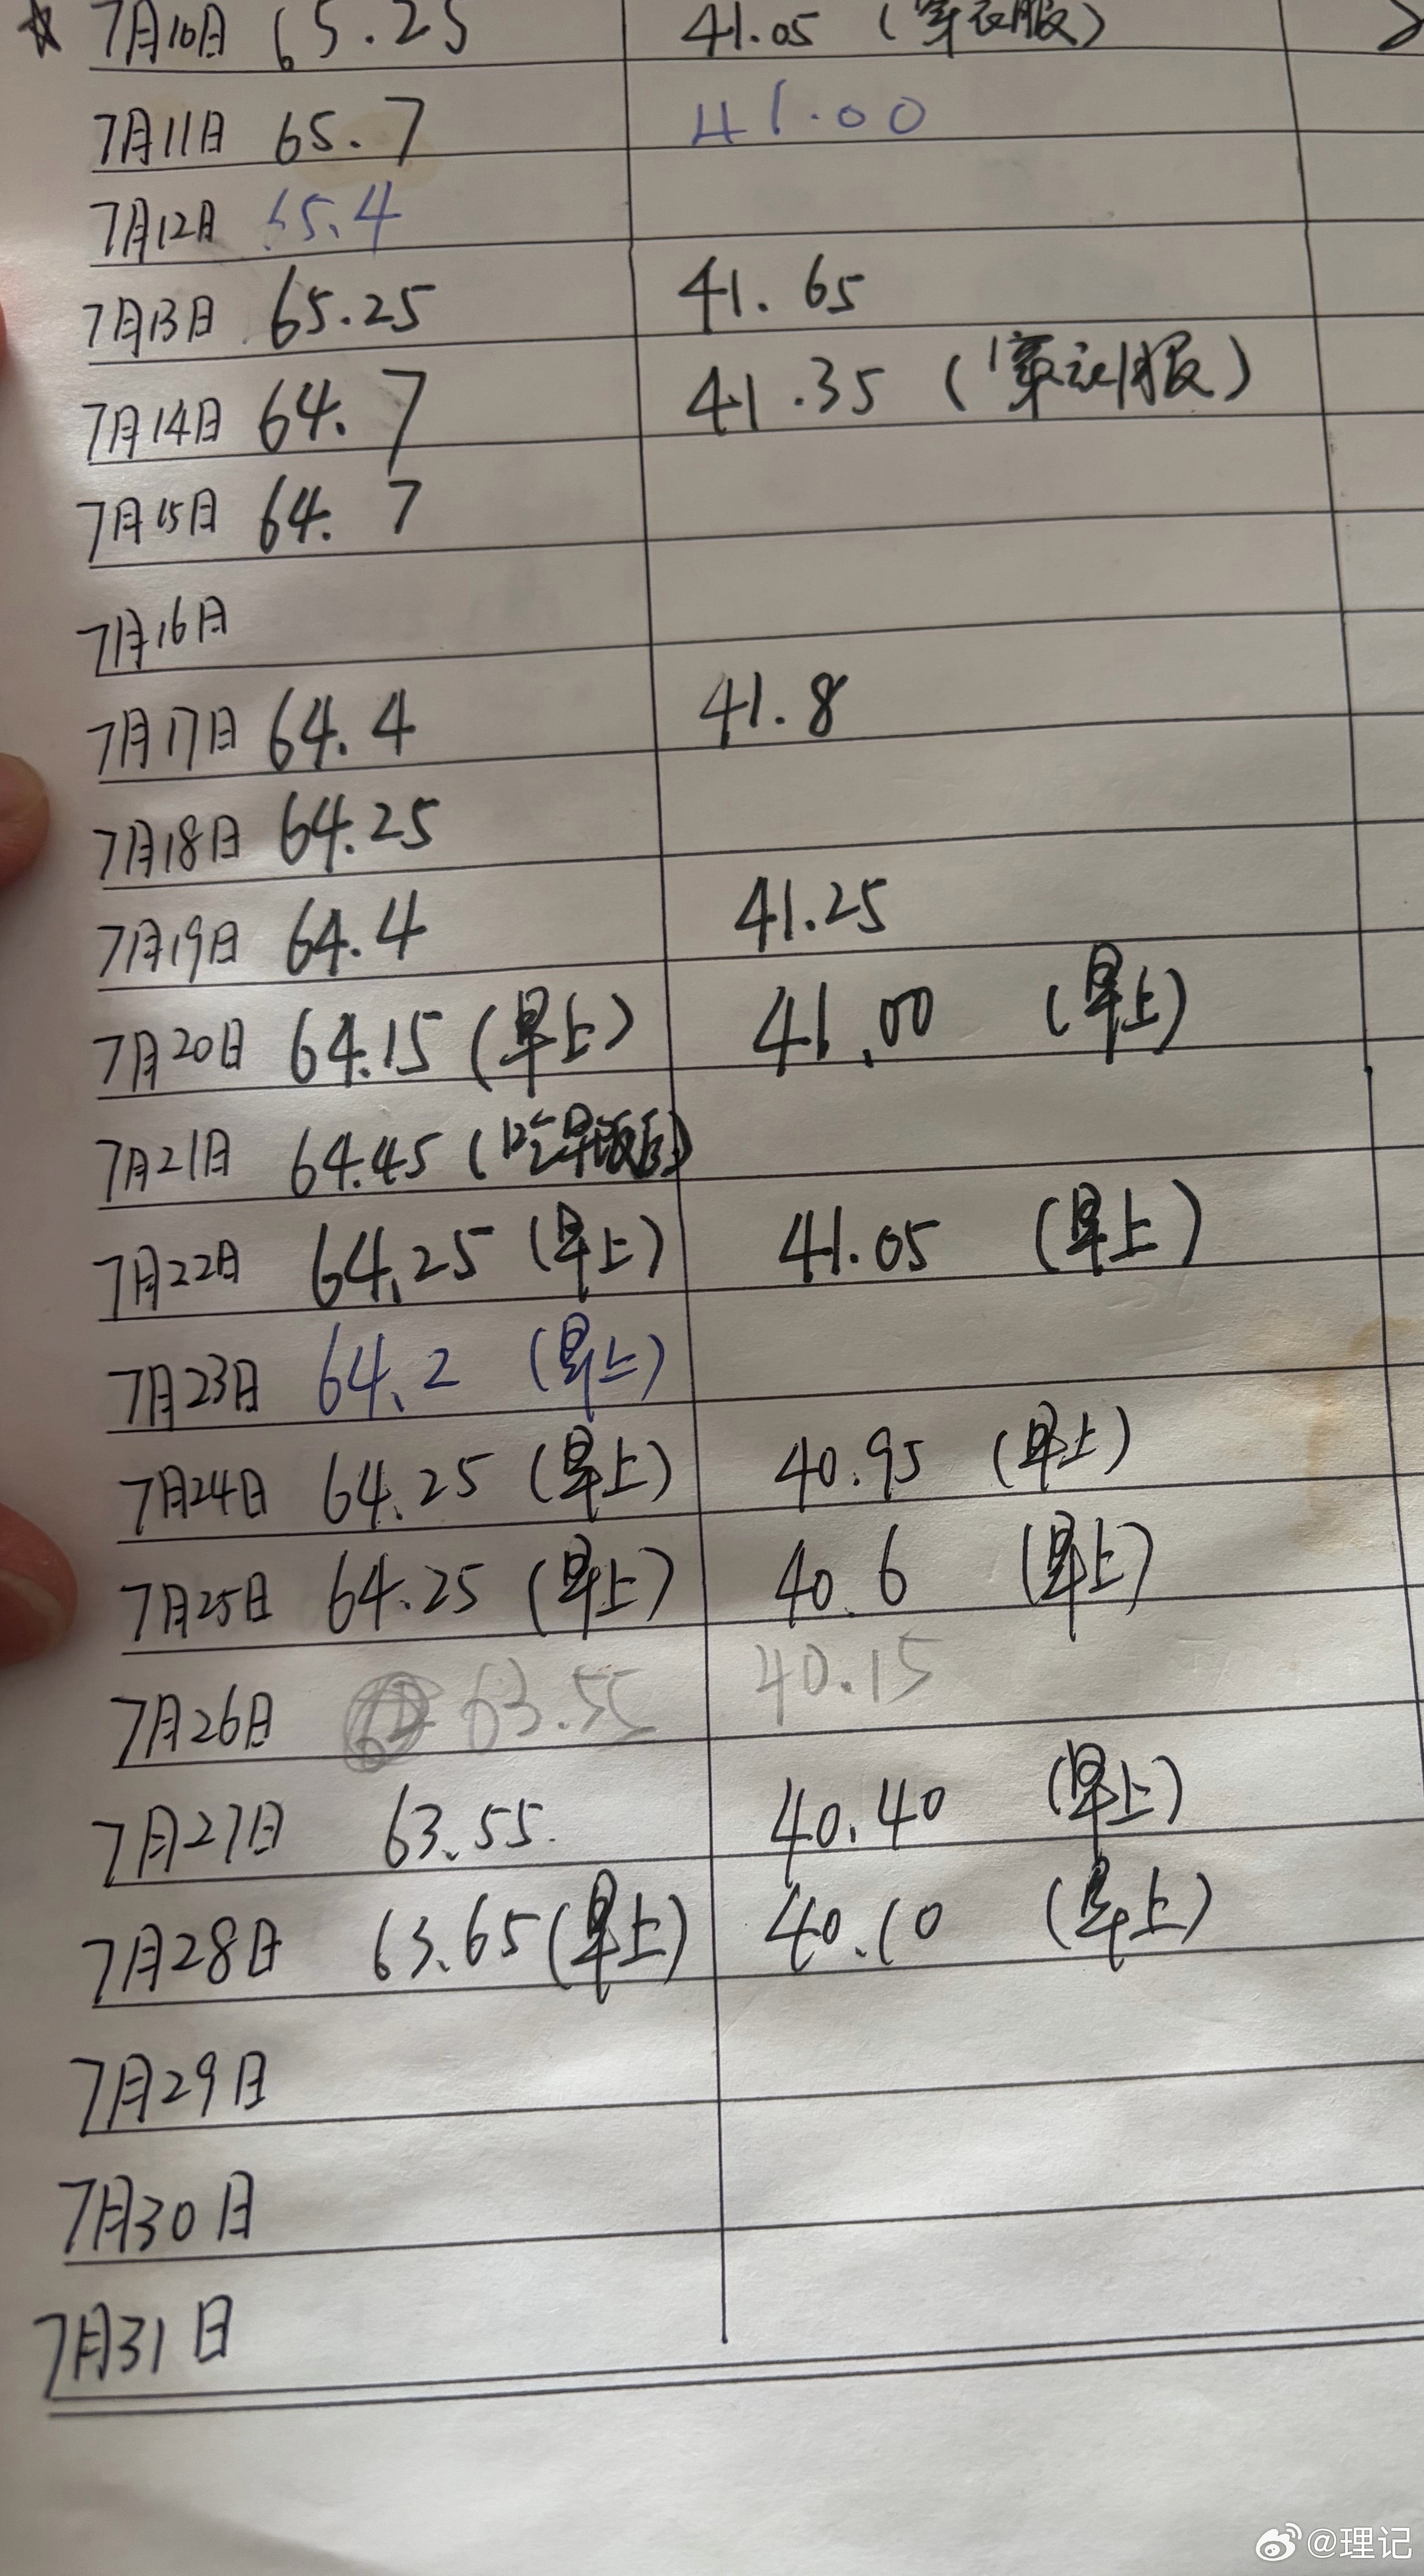 7月10日 65.25 41.05 (穿衣服)
7月11日 65.7 41.00
7月12日 65.4
7月13日 65.25 41.65
7月14日 64.7 41.35 (穿衣服)
7月15日 64.7
7月16日
7月17日 64.4 41.8
7月18日 64.25
7月19日 64.4 41.25
7月20日 64.15 (早上) 41.00 (早上)
7月21日 64.45 (吃早饭后)
7月22日 64.25 (早上) 41.05 (早上)
7月23日 64.2 (早上)
7月24日 64.25 (早上) 40.95 (早上)
7月25日 64.25 (早上) 40.6 (早上)
7月26日 63.55 40.15
7月27日 63.55 40.40 (早上)
7月28日 63.65 (早上) 40.10 (早上)
7月29日
7月30日
7月31日
@理记